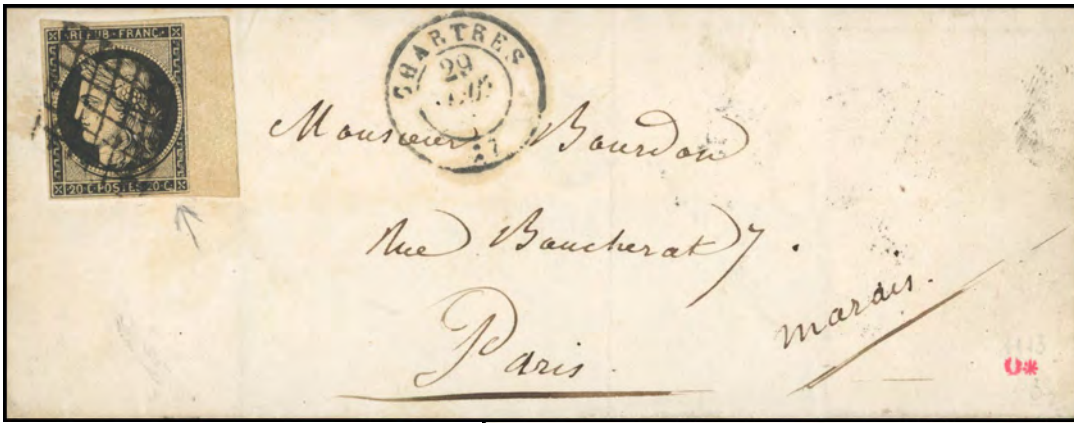 REPUB·FRANC·
20 C·POSTES·20·C·
CHARTRES
29
27
Monsieur Bourdon
Rue Boucherat 7.
Paris.
marais.